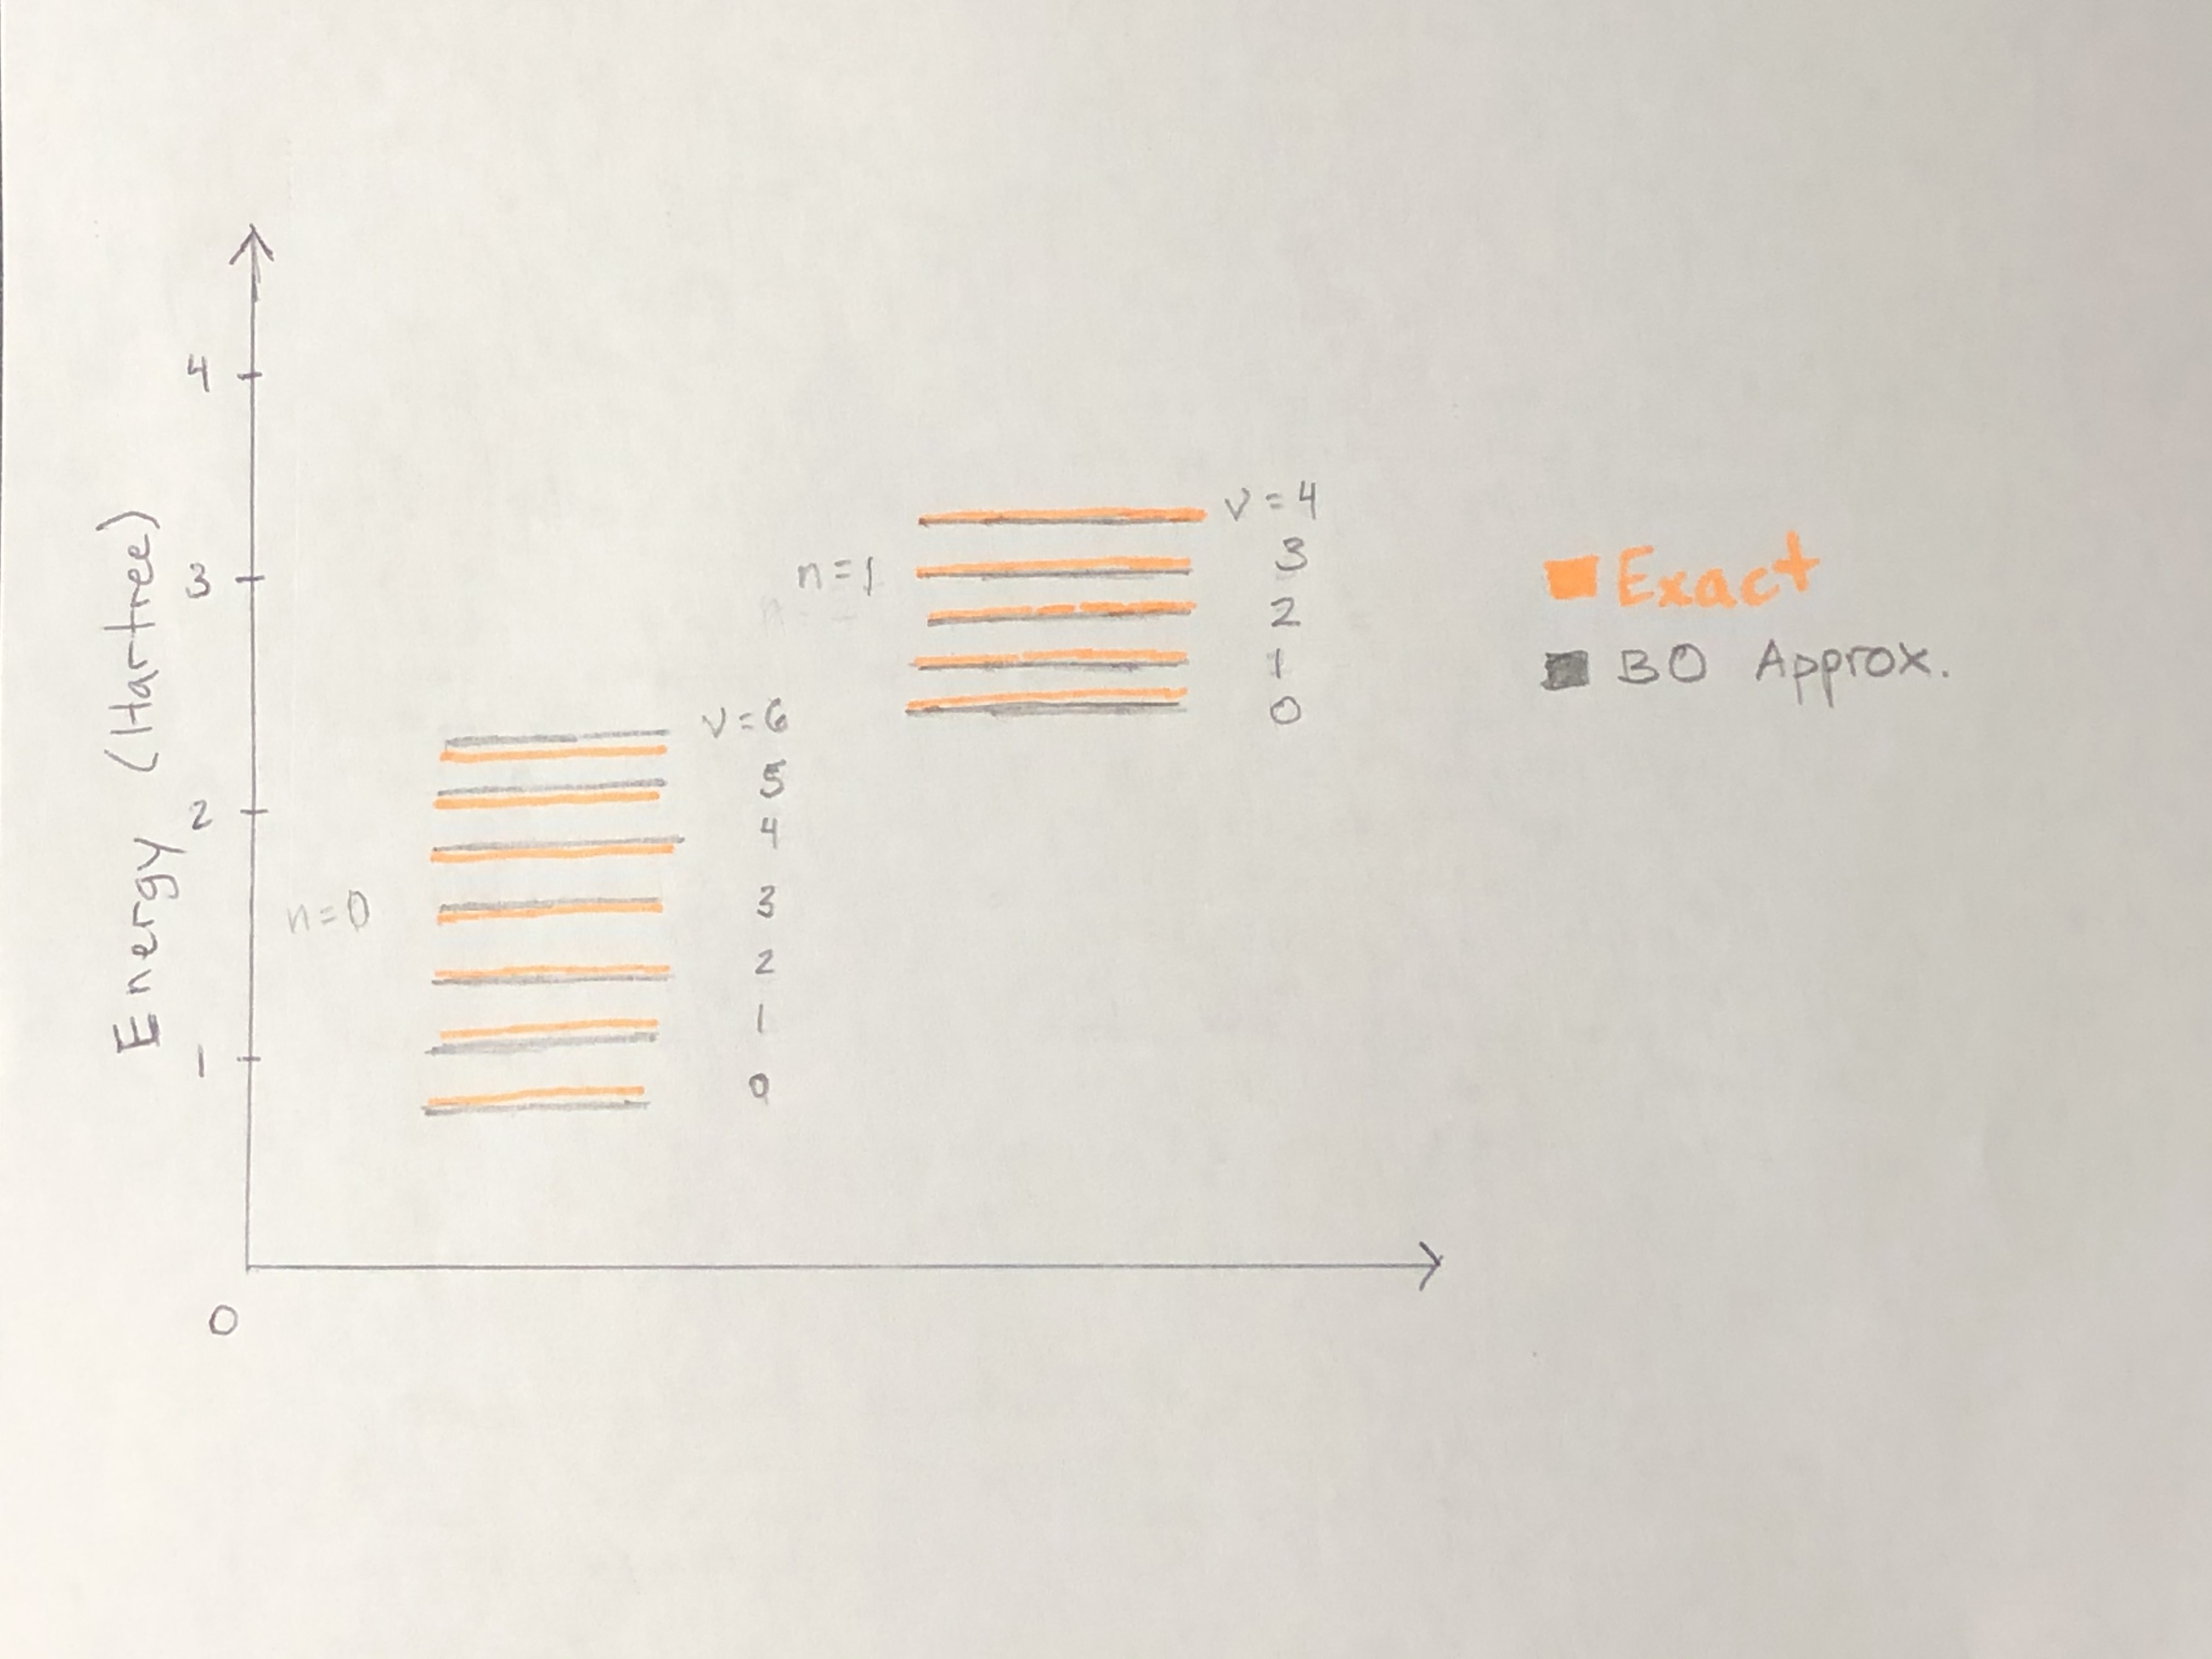 Energy (Hartree)
4
3
2
1
0
n=0
v=6
5
4
3
2
1
0
n=1
v=4
3
2
1
0
Exact
BO Approx.